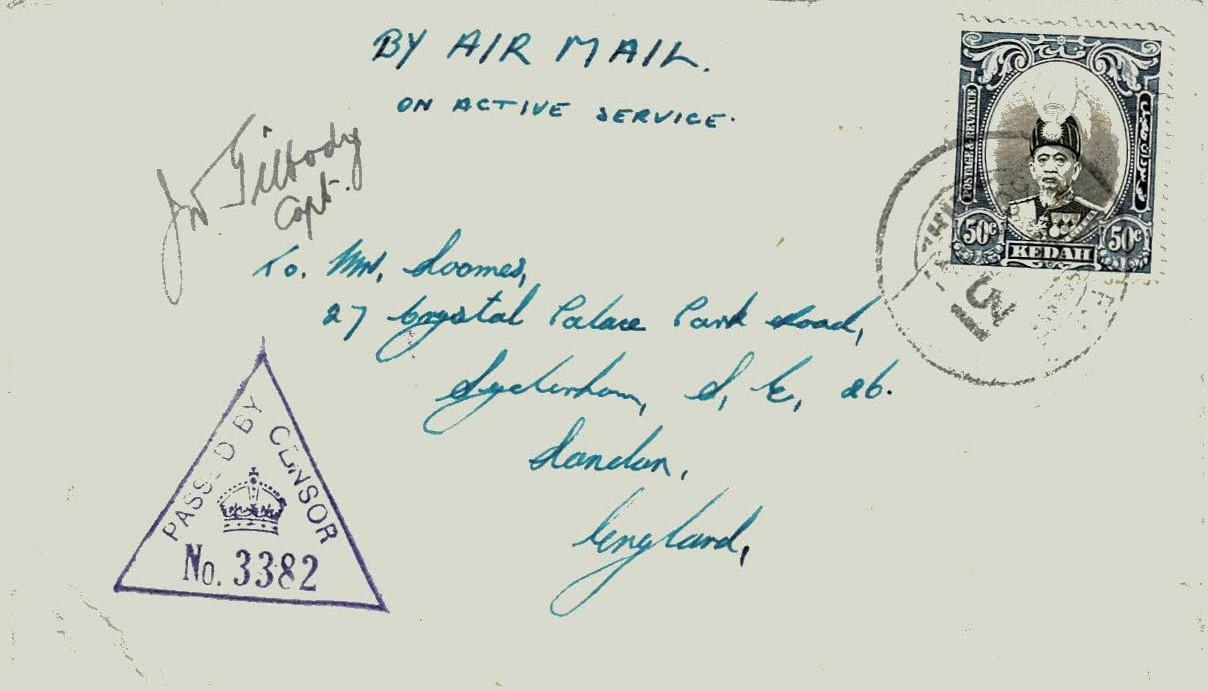 BY AIR MAIL.
ON ACTIVE SERVICE.
Capt.
To. Mrs. Soomes,
27 Crystal Palace Park Road,
Sydenham, S, E, 26.
London,
England,
PASSED BY CENSOR
No. 3382
POSTAGE & REVENUE
50c
50c
KEDAH